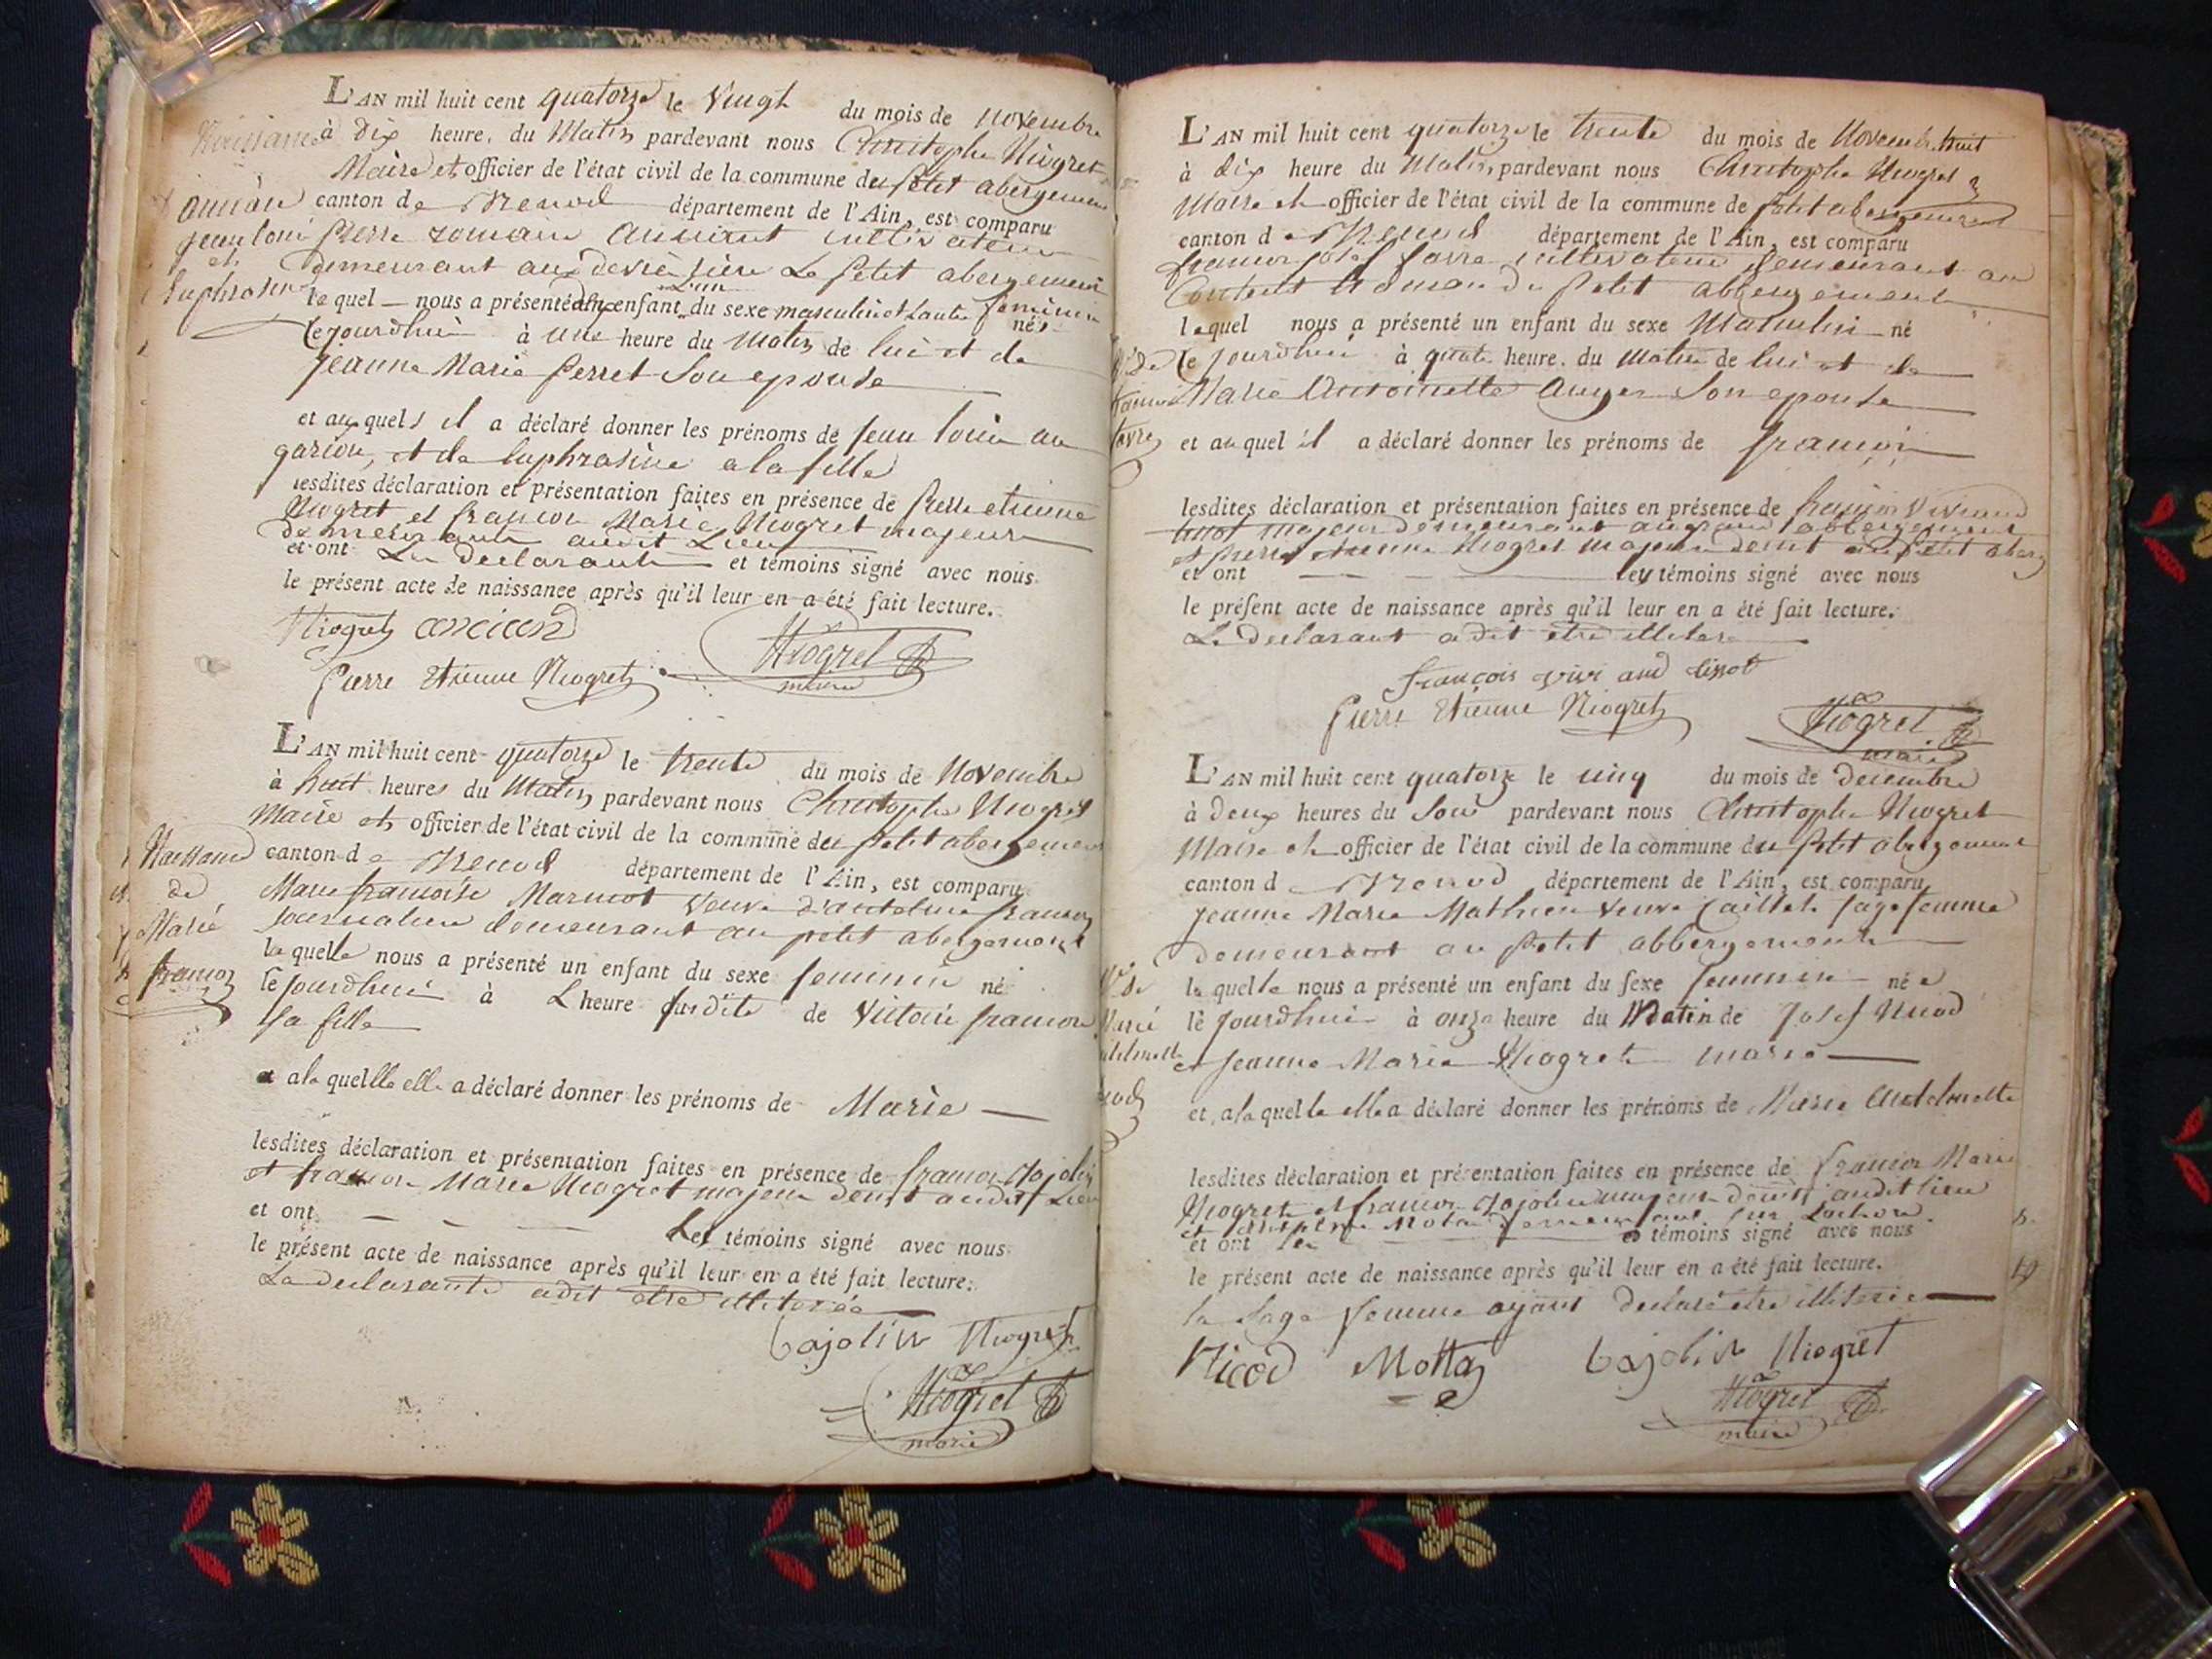 L'AN mil huit cent quatorze le Vingt du mois de novembre
à dix heure, du Matin pardevant nous Christophe Niogret
Maire et officier de l'état civil de la commune du petit abergement
canton de Brenod département de l'Ain, est comparu
pierre romain ancian cultivateur
demeurant
lequel nous a présenté deux enfant l'un du sexe masculin et l'autre feminin
nés
cejourdhui à une heure du Matin de lui et de
jeanne Marie perret Son epouse
et auxquels il a déclaré donner les prénoms de jean louis au
garcon, et de Euphrasine a la fille
lesdites déclaration et présentation faites en présence de pierre etienne
Niogret et francois Marie Niogret majeurs
demeurants audit Lieu
et ont Le declarant et témoins signé avec nous
le présent acte de naissance après qu'il leur en a été fait lecture.
Niogret ancian
Pierre Etienne Niogret Niogret
maire
L'AN mil huit cent quatorze le trente du mois de Novembre
à huit heures du Matin pardevant nous Christophe Niogret
Maire et officier de l'état civil de la commune du petit abergement
Naissance
de
Marie
francon
canton de Brenod département de l'Ain, est comparu
Marie francoise Marmot veuve d'antelme francon
journaliere demeurant au petit abergement
laquelle nous a présenté un enfant du sexe feminin né
cejourdhui à L heure susdite de Victoire francon
sa fille
et a laquelle elle a déclaré donner les prénoms de Marie
lesdites déclaration et présentation faites en présence de francois Bajolin
et francois Marie Niogret majeur demt audit Lieu
et ont Les témoins signé avec nous
le présent acte de naissance après qu'il leur en a été fait lecture.
La declarante a dit etre illiterée
bajolin Niogret
Niogret
maire
L'AN mil huit cent quatorze le trente du mois de Novembre
à dix heure du Matin, pardevant nous Christophe Niogret
Maire et officier de l'état civil de la commune de petit abergement
canton de Brenod département de l'Ain, est comparu
francois josef favre cultivateur demeurant au
du petit abbergement
lequel nous a présenté un enfant du sexe Masculin né
cejourdhui à quatre heure du Matin de lui et de
Marie Antoinette Auger Son epouse
et auquel il a déclaré donner les prénoms de francois
lesdites déclaration et présentation faites en présence de francois Viviand
tissot majeur demeurant au grand abbergement
et pierre etienne Niogret majeur demt au petit aberg
et ont les témoins signé avec nous
le présent acte de naissance après qu'il leur en a été fait lecture.
Le declarant a dit etre illitere
françois viviand tissot
Pierre Etienne Niogret Niogret
maire
L'AN mil huit cent quatorze le cinq du mois de decembre
à deux heures du Soir pardevant nous Christophe Niogret
Maire et officier de l'état civil de la commune du petit abergement
canton de Brenod département de l'Ain, est comparu
jeanne Marie Mathieu veuve caillet sage femme
demeurant au petit abbergement
laquelle nous a présenté un enfant du sexe feminin née
cejourdhui à onze heure du Matin de Josef Nicod
et jeanne Marie Niogret mariés
et a laquelle elle a déclaré donner les prénoms de Marie Anthelmette
lesdites déclaration et présentation faites en présence de francois Marie
Niogret et francois Bajolin majeurs demts audit lieu
et ont les témoins signé avec nous
le présent acte de naissance après qu'il leur en a été fait lecture.
la sage femme ayant declaré etre illiterée
Nicod Mottaz bajolin Niogret
Niogret
maire